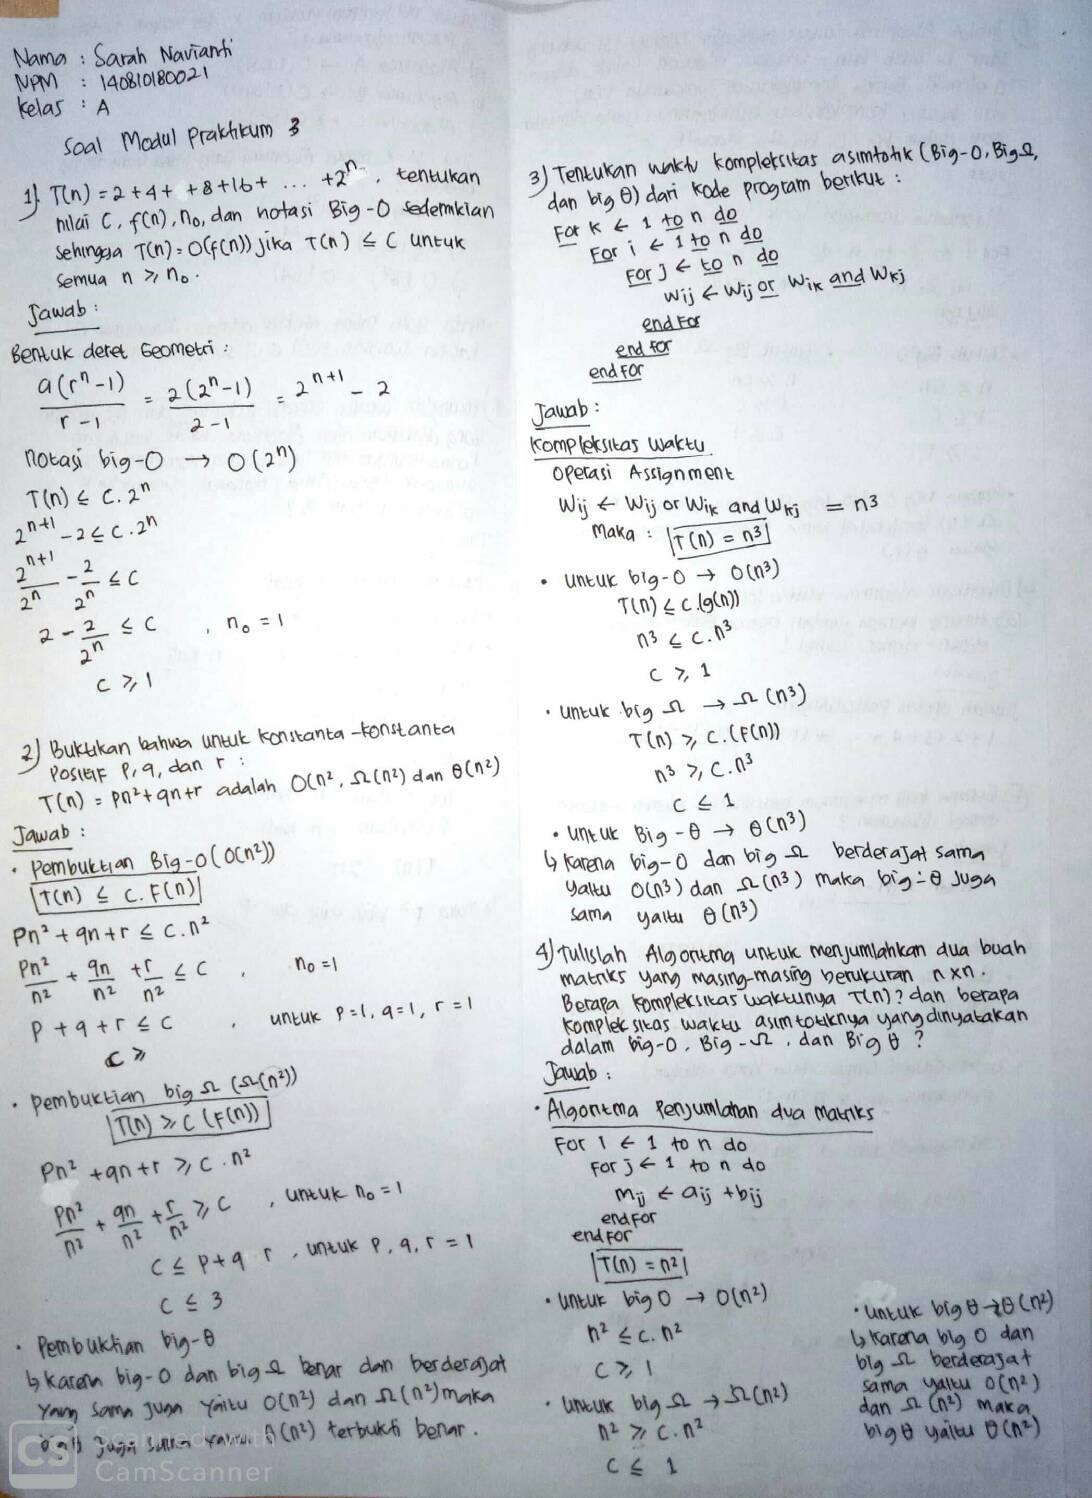 Nama : Sarah Navianti
NPM : 140810180021
Kelas : A
Soal Modul Praktikum 3
1) T(n) = 2 + 4 + + 8 + 16 + ... + 2^n. , tentukan
nilai C, f(n), n₀, dan notasi Big-O sedemikian
sehingga T(n) = O(f(n)) jika T(n) ≤ C untuk
semua n ≥ n₀.
Jawab :
Bentuk deret Geometri :
a(r^n - 1) / r - 1 = 2(2^n - 1) / 2 - 1 = 2^(n+1) - 2
Notasi big-O → O(2^n)
T(n) ≤ C. 2^n
2^(n+1) - 2 ≤ C. 2^n
2^(n+1)/2^n - 2/2^n ≤ C
2 - 2/2^n ≤ C , n₀ = 1
C ≥ 1
2) Buktikan bahwa untuk konstanta-konstanta
positif P, q, dan r :
T(n) = pn² + qn + r adalah O(n², Ω(n²) dan θ(n²)
Jawab :
• Pembuktian Big-O (O(n²))
T(n) ≤ C. F(n)
Pn² + qn + r ≤ C. n²
Pn²/n² + qn/n² + r/n² ≤ C , n₀ = 1
P + q + r ≤ C , untuk P=1, q=1, r=1
C ≥
• Pembuktian big Ω (Ω(n²))
T(n) ≥ C (F(n))
Pn² + qn + r ≥ C. n²
Pn²/n² + qn/n² + r/n² ≥ C , untuk n₀ = 1
C ≤ P + q r , untuk P, q, r = 1
C ≤ 3
• Pembuktian big-θ
↳ Karena big-O dan big Ω benar dan berderajat
yang sama juga yaitu O(n²) dan Ω(n²) maka
juga θ(n²) terbukti benar.
CS Scanned with
CamScanner
3) Tentukan waktu kompleksitas asimtotik (Big-O, Big Ω,
dan big θ) dari kode program berikut :
For k ← 1 to n do
For i ← 1 to n do
For j ← to n do
Wij ← Wij or Wik and Wkj
end For
end for
end for
Jawab :
Kompleksitas waktu
Operasi Assignment
Wij ← Wij or Wik and Wkj = n³
Maka : T(n) = n³
• Untuk big-O → O(n³)
T(n) ≤ C.(g(n))
n³ ≤ C. n³
C ≥ 1
• Untuk big Ω → Ω (n³)
T(n) ≥ C. (F(n))
n³ ≥ C. n³
C ≤ 1
• Untuk Big-θ → θ(n³)
↳ Karena big-O dan big Ω berderajat sama
yaitu O(n³) dan Ω(n³) maka big-θ juga
sama yaitu θ(n³)
4) Tulislah Algoritma untuk menjumlahkan dua buah
matriks yang masing-masing berukuran n x n.
Berapa kompleksitas waktunya T(n)? dan berapa
kompleksitas waktu asimtotiknya yang dinyatakan
dalam big-O, Big-Ω, dan Big θ ?
Jawab :
• Algoritma Penjumlahan dua matriks
For i ← 1 to n do
For j ← 1 to n do
mij ← aij + bij
end for
end for
T(n) = n²
• Untuk big O → O(n²)
n² ≤ C. n²
C ≥ 1
• Untuk big Ω → Ω(n²)
n² ≥ C. n²
C ≤ 1
• Untuk big θ → θ(n²)
↳ Karena big O dan
big Ω berderajat
sama yaitu O(n²)
dan Ω (n²) maka
big θ yaitu θ(n²)